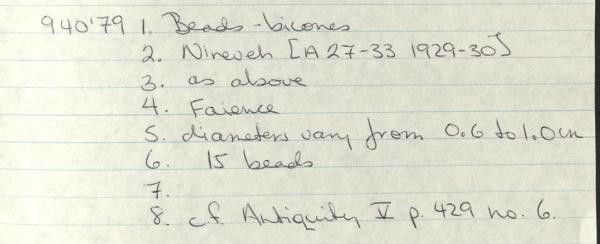 940'79 1. Beads - bicones
2. Nineveh [A 27-33 1929-30]
3. as above
4. Faience
5. diameters vary from 0.6 to 1.0cm
6. 15 beads
7.
8. c.f. Antiquity V p. 429 no. 6.